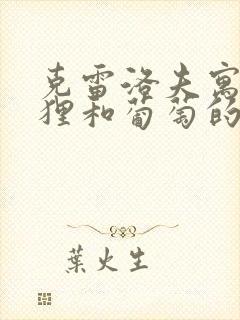 克雷洛夫寓
狸和葡萄的
葉火生